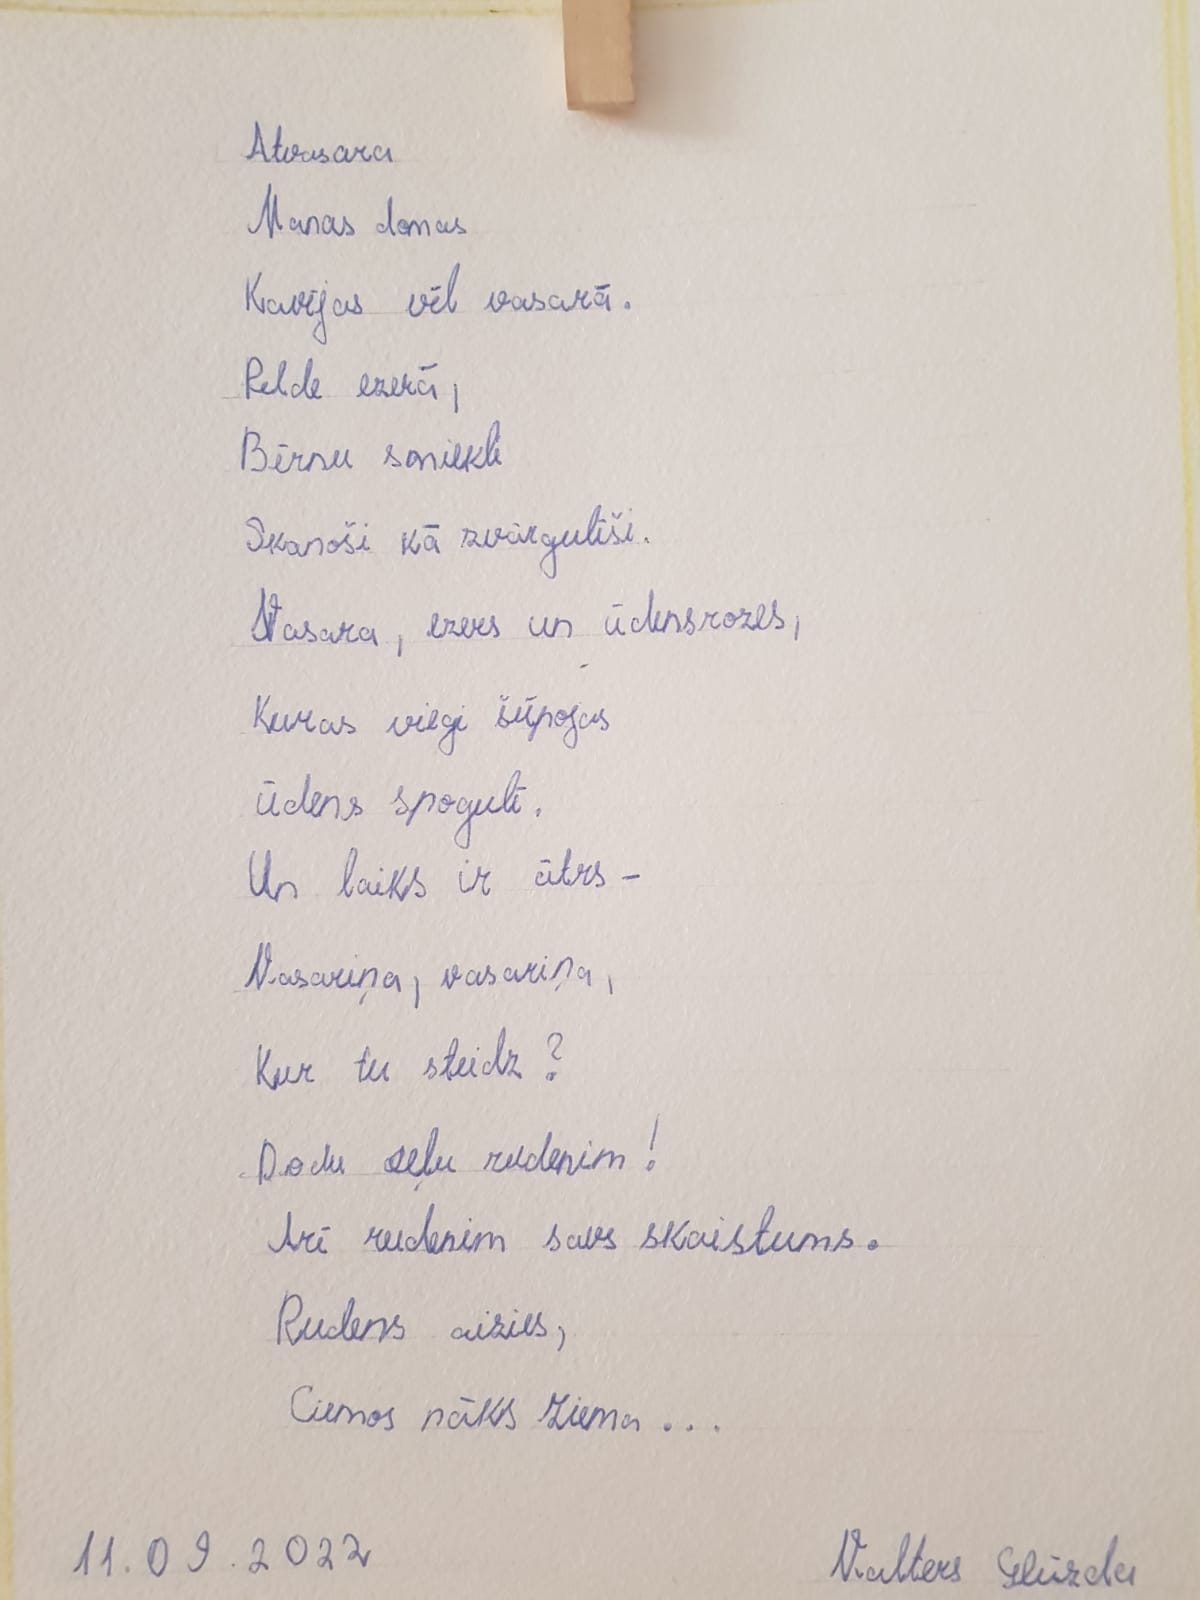 Atvasara
Manas domas
Kavējas vēl vasarā.
Pelde ezerā,
Bērnu smiekli
Skanoši kā zvārgulīši.
Vasara, ezers un ūdensrozes,
Kuras viegi šūpojas
ūdens spogulī.
Un laiks ir ātrs -
Vasariņa, vasariņa,
Kur tu steidz?
Dodu ceļu rudenim!
Arī rudenim savs skaistums.
Rudens aizies,
Ciemos nāks ziema...
11.09.2022 Valters Glūzda